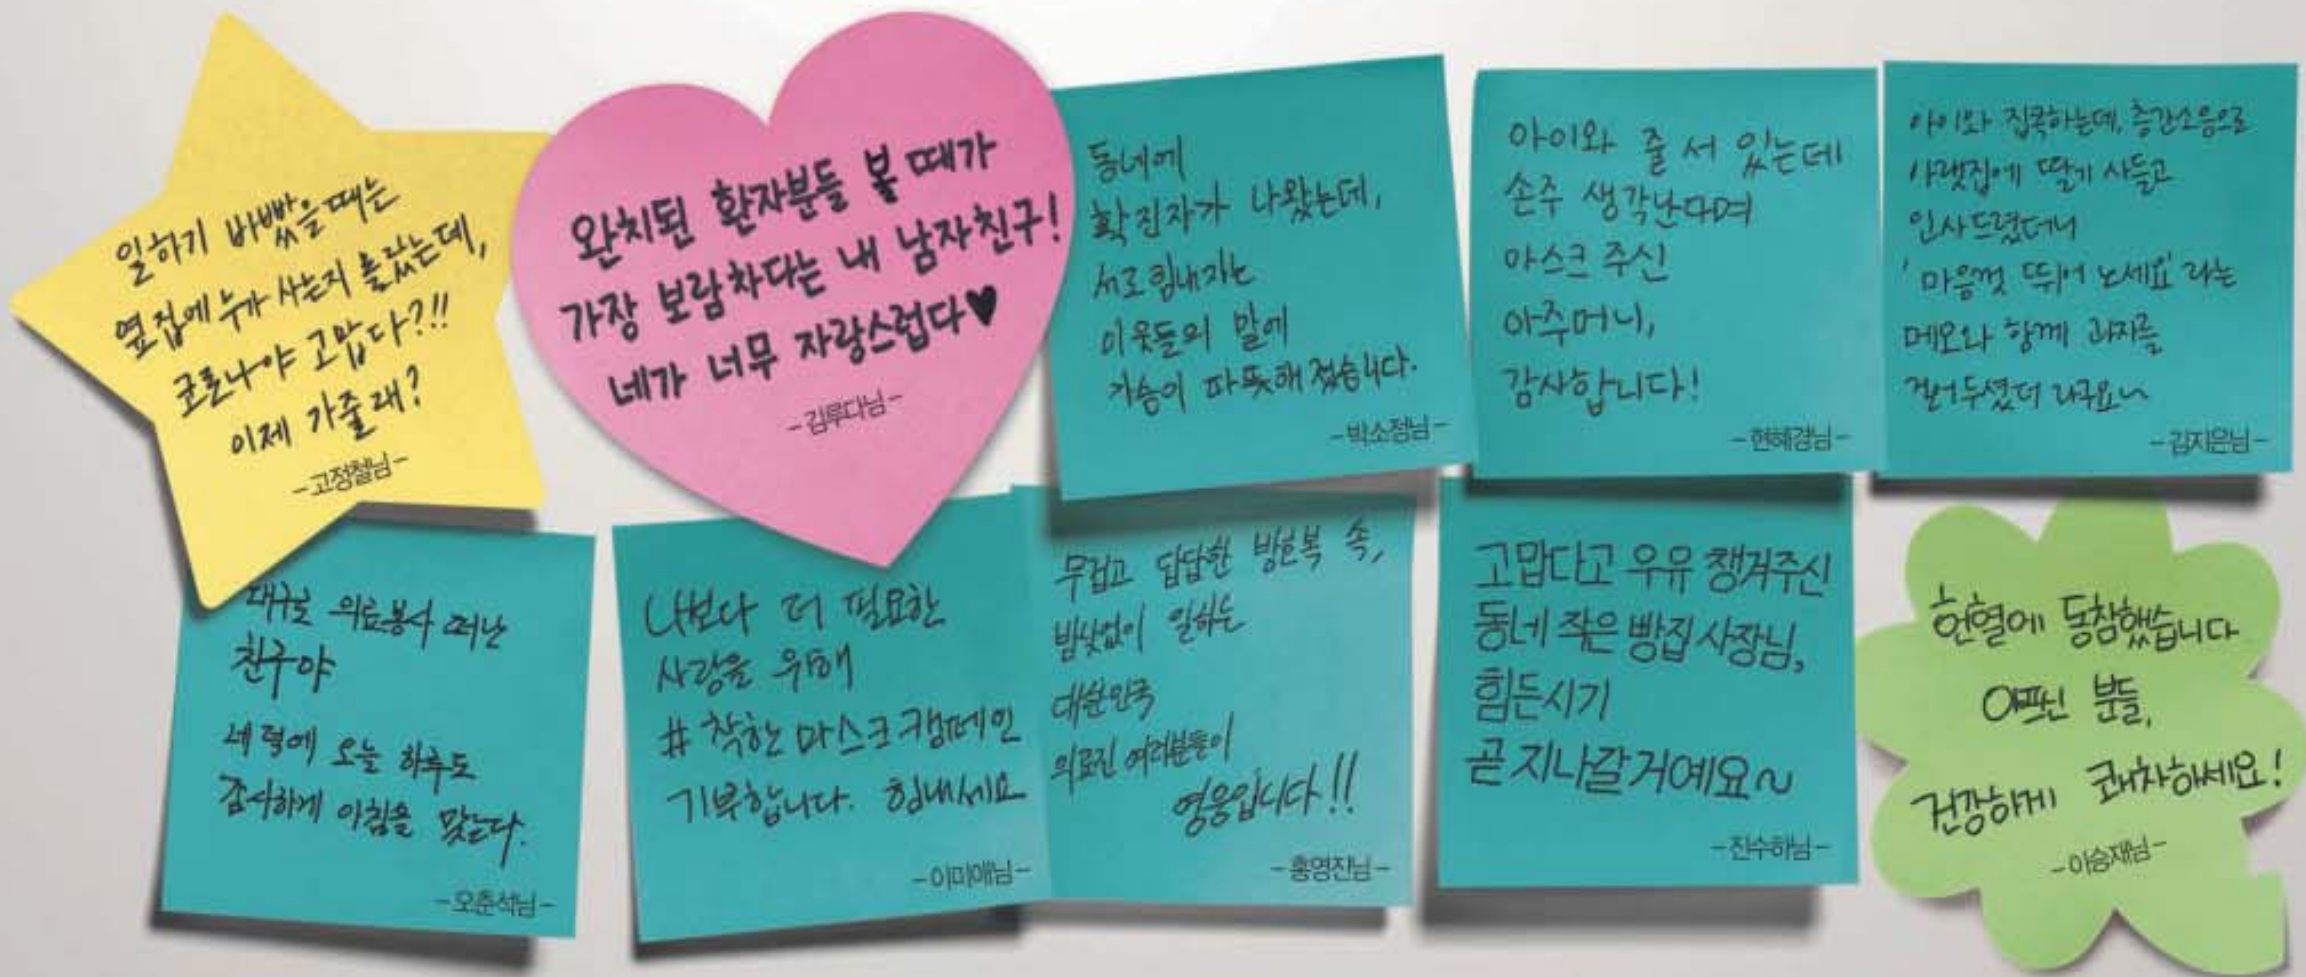 일하기 바빴을때는
옆집에 누가 사는지 몰랐는데,
코로나야 고맙다?!!
이제 가줄래?
-고정철님-
완치된 환자분들 볼 때가
가장 보람차다는 내 남자친구!
네가 너무 자랑스럽다♥
-김루다님-
동네에
확진자가 나왔는데,
서로힘내자는
이웃들의 말에
가슴이 따뜻해졌습니다.
-박소정님-
아이와 줄 서 있는데
손주 생각난다며
마스크 주신
아주머니,
감사합니다!
-현혜경님-
아이와 집콕하는데, 층간소음으로
아랫집에 딸기 사들고
인사드렸더니
'마음껏 뛰어 노세요'라는
메모와 함께 과자를
걸어두셨더라구요~
-김지은님-
대구로 의료봉사 떠난
친구야
네 덕에 오늘 하루도
감사하게 아침을 맞는다.
-오춘석님-
나보다 더 필요한
사람을 위해
#착한마스크캠페인
기부합니다. 힘내세요
-이미애님-
무겁고 답답한 방호복 속,
밤낮없이 일하는
대한민국
의료진 여러분들이
영웅입니다!!
-홍영진님-
고맙다고 우유 챙겨주신
동네 작은 빵집 사장님,
힘든시기
곧 지나갈거예요~
-진수하님-
헌혈에 동참했습니다
아프신 분들,
건강하게 쾌차하세요!
-이승재님-